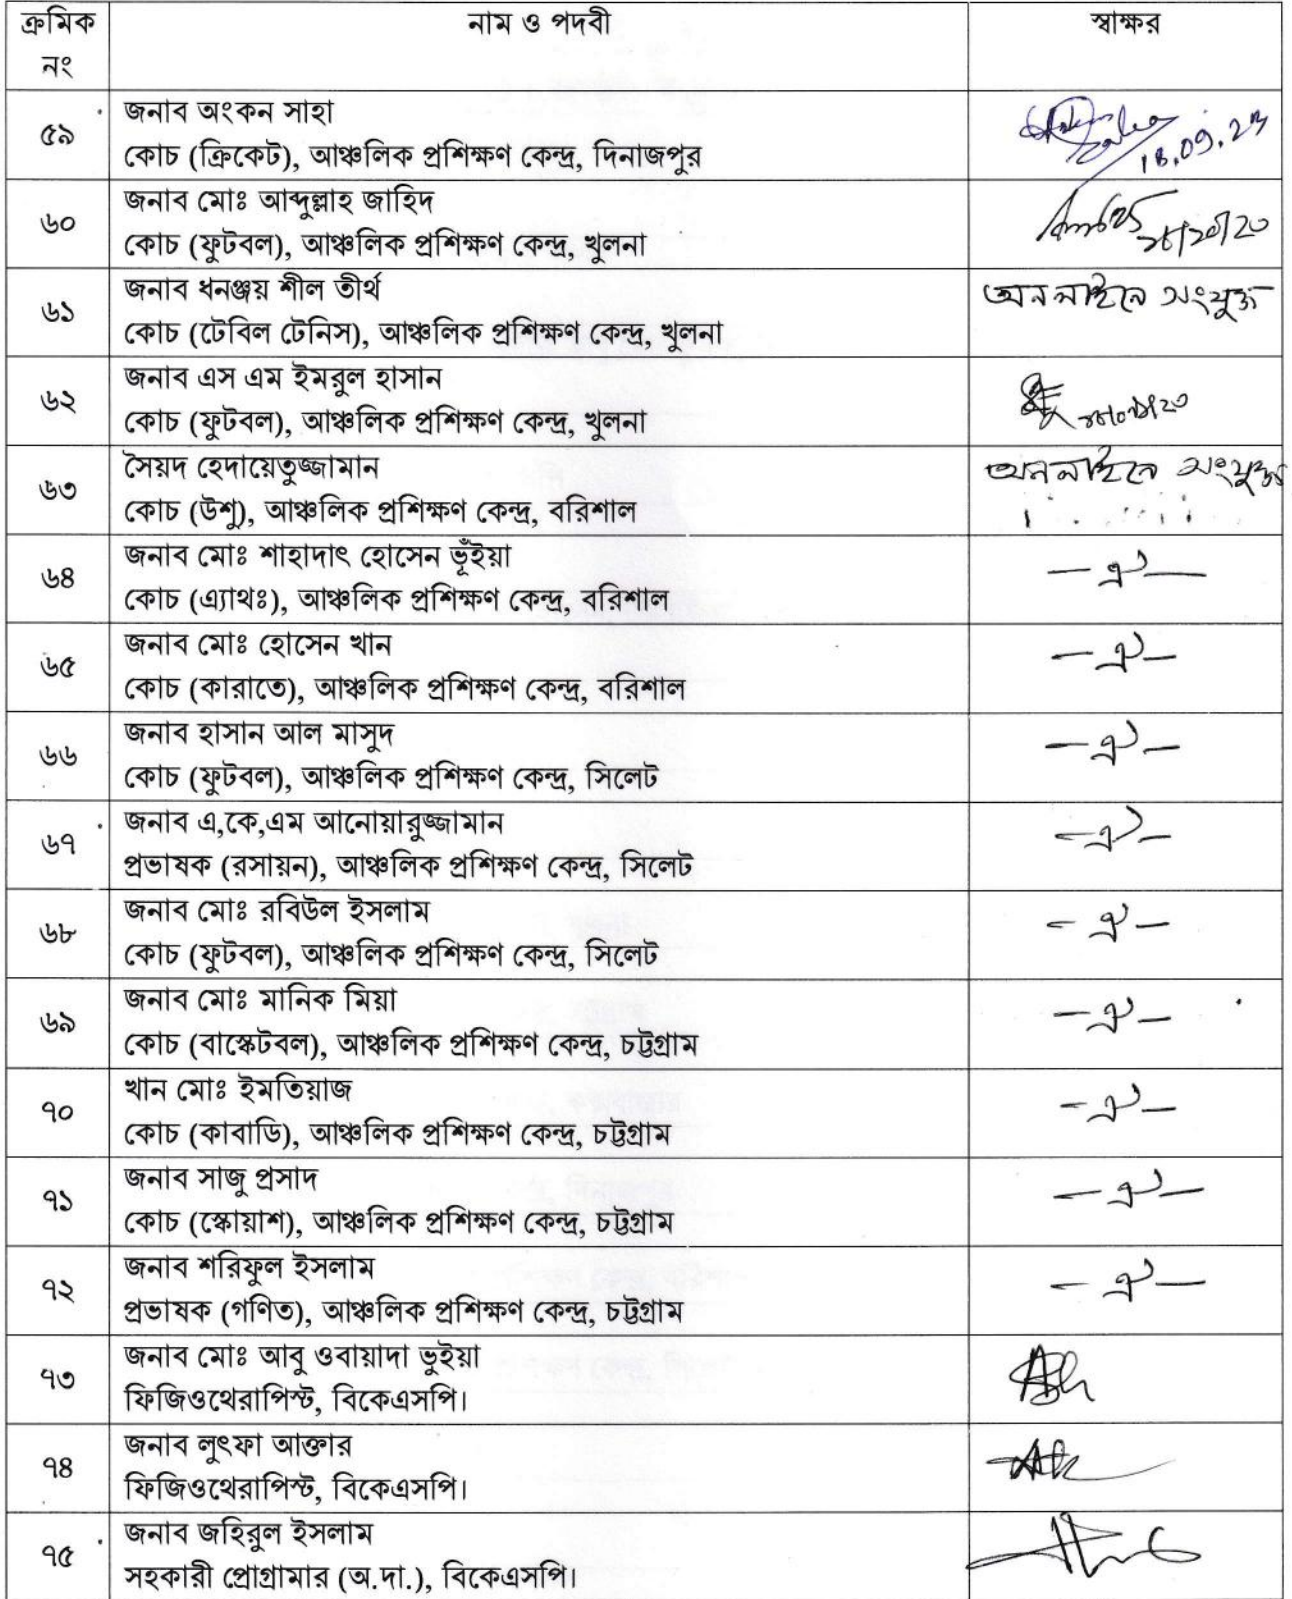 ক্রমিক নং নাম ও পদবী স্বাক্ষর
৫৯ জনাব অংকন সাহা
কোচ (ক্রিকেট), আঞ্চলিক প্রশিক্ষণ কেন্দ্র, দিনাজপুর
18.09.23
৬০ জনাব মোঃ আব্দুল্লাহ জাহিদ
কোচ (ফুটবল), আঞ্চলিক প্রশিক্ষণ কেন্দ্র, খুলনা
৬১ জনাব ধনঞ্জয় শীল তীর্থ অনলাইনে সংযুক্ত
কোচ (টেবিল টেনিস), আঞ্চলিক প্রশিক্ষণ কেন্দ্র, খুলনা
৬২ জনাব এস এম ইমরুল হাসান
কোচ (ফুটবল), আঞ্চলিক প্রশিক্ষণ কেন্দ্র, খুলনা
৬৩ সৈয়দ হেদায়েতুজ্জামান অনলাইনে সংযুক্ত
কোচ (উশু), আঞ্চলিক প্রশিক্ষণ কেন্দ্র, বরিশাল
৬৪ জনাব মোঃ শাহাদাৎ হোসেন ভূঁইয়া — ঐ —
কোচ (এ্যাথঃ), আঞ্চলিক প্রশিক্ষণ কেন্দ্র, বরিশাল
৬৫ জনাব মোঃ হোসেন খান — ঐ —
কোচ (কারাতে), আঞ্চলিক প্রশিক্ষণ কেন্দ্র, বরিশাল
৬৬ জনাব হাসান আল মাসুদ — ঐ —
কোচ (ফুটবল), আঞ্চলিক প্রশিক্ষণ কেন্দ্র, সিলেট
৬৭ জনাব এ,কে,এম আনোয়ারুজ্জামান — ঐ —
প্রভাষক (রসায়ন), আঞ্চলিক প্রশিক্ষণ কেন্দ্র, সিলেট
৬৮ জনাব মোঃ রবিউল ইসলাম — ঐ —
কোচ (ফুটবল), আঞ্চলিক প্রশিক্ষণ কেন্দ্র, সিলেট
৬৯ জনাব মোঃ মানিক মিয়া — ঐ —
কোচ (বাস্কেটবল), আঞ্চলিক প্রশিক্ষণ কেন্দ্র, চট্টগ্রাম
৭০ খান মোঃ ইমতিয়াজ — ঐ —
কোচ (কাবাডি), আঞ্চলিক প্রশিক্ষণ কেন্দ্র, চট্টগ্রাম
৭১ জনাব সাজু প্রসাদ — ঐ —
কোচ (স্কোয়াশ), আঞ্চলিক প্রশিক্ষণ কেন্দ্র, চট্টগ্রাম
৭২ জনাব শরিফুল ইসলাম — ঐ —
প্রভাষক (গণিত), আঞ্চলিক প্রশিক্ষণ কেন্দ্র, চট্টগ্রাম
৭৩ জনাব মোঃ আবু ওবায়াদা ভুইয়া
ফিজিওথেরাপিস্ট, বিকেএসপি।
৭৪ জনাব লুৎফা আক্তার
ফিজিওথেরাপিস্ট, বিকেএসপি।
৭৫ জনাব জহিরুল ইসলাম
সহকারী প্রোগ্রামার (অ.দা.), বিকেএসপি।